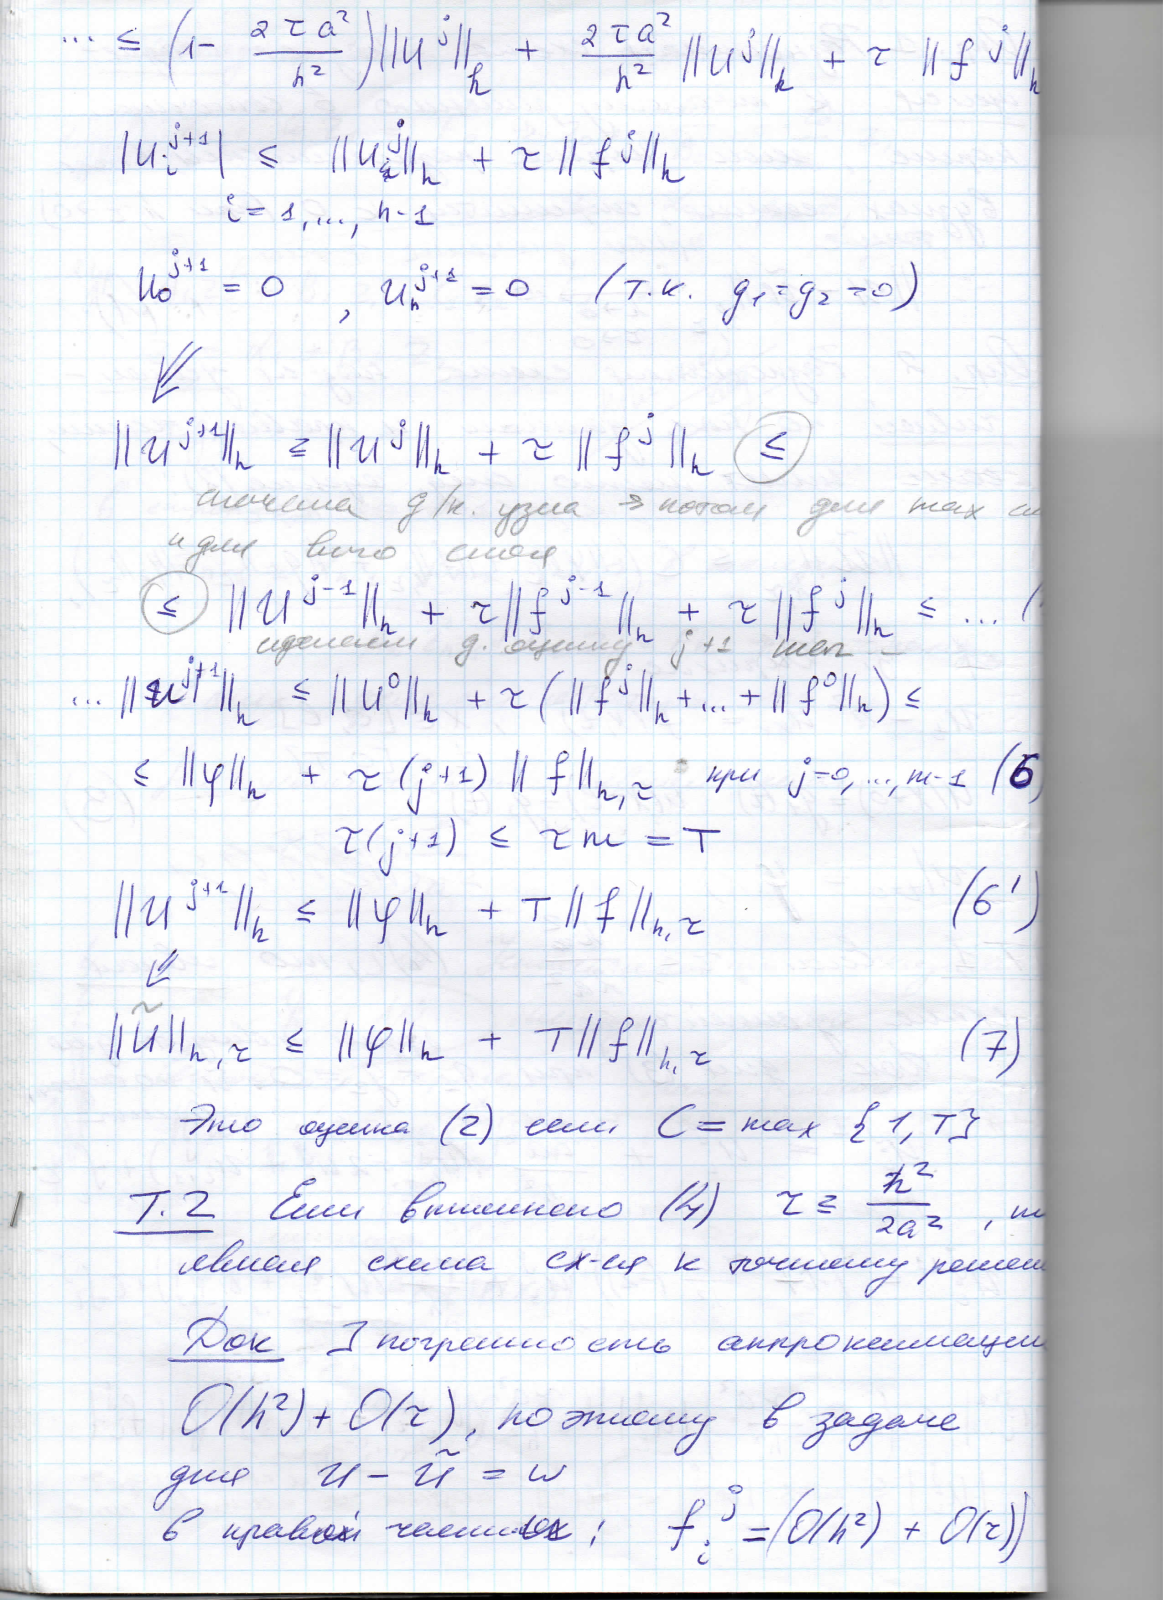 ... ≤ (1 - 2τa²/h²)||u^j||_h + 2τa²/h² ||u^j||_h + τ ||f^j||_h
|u_i^{j+1}| ≤ ||u^j||_h + τ ||f^j||_h
i = 1, ..., n-1
u_0^{j+1} = 0 , u_n^{j+1} = 0 (т.к. g₁ = g₂ = 0)
⇙
||u^{j+1}||_h ≤ ||u^j||_h + τ ||f^j||_h ≤
сначала д/к. узла → потом для max
и для всего слоя
≤ ||u^{j-1}||_h + τ||f^{j-1}||_h + τ||f^j||_h ≤ ... (
сделаем д. оценку j+1 шаг -
... ||u^{j+1}||_h ≤ ||u^0||_h + τ(||f^j||_h + ... + ||f^0||_h) ≤
≤ ||φ||_h + τ(j+1) ||f||_{h,τ} при j=0, ..., m-1 (6)
τ(j+1) ≤ τm = T
||u^{j+1}||_h ≤ ||φ||_h + T||f||_{h,τ} (6')
⇙
||ũ||_{h,τ} ≤ ||φ||_h + T||f||_{h,τ} (7)
Это оценка (2) если C = max {1, T}
Т.2 Если выполнено (4) τ ≤ h²/2a² ,
явная схема сх-ся к точному решен
Док ] погрешность аппроксимации
O(h²) + O(τ), поэтому в задаче
для u - ũ = w
в правой части : f_i^j = (O(h²) + O(τ))